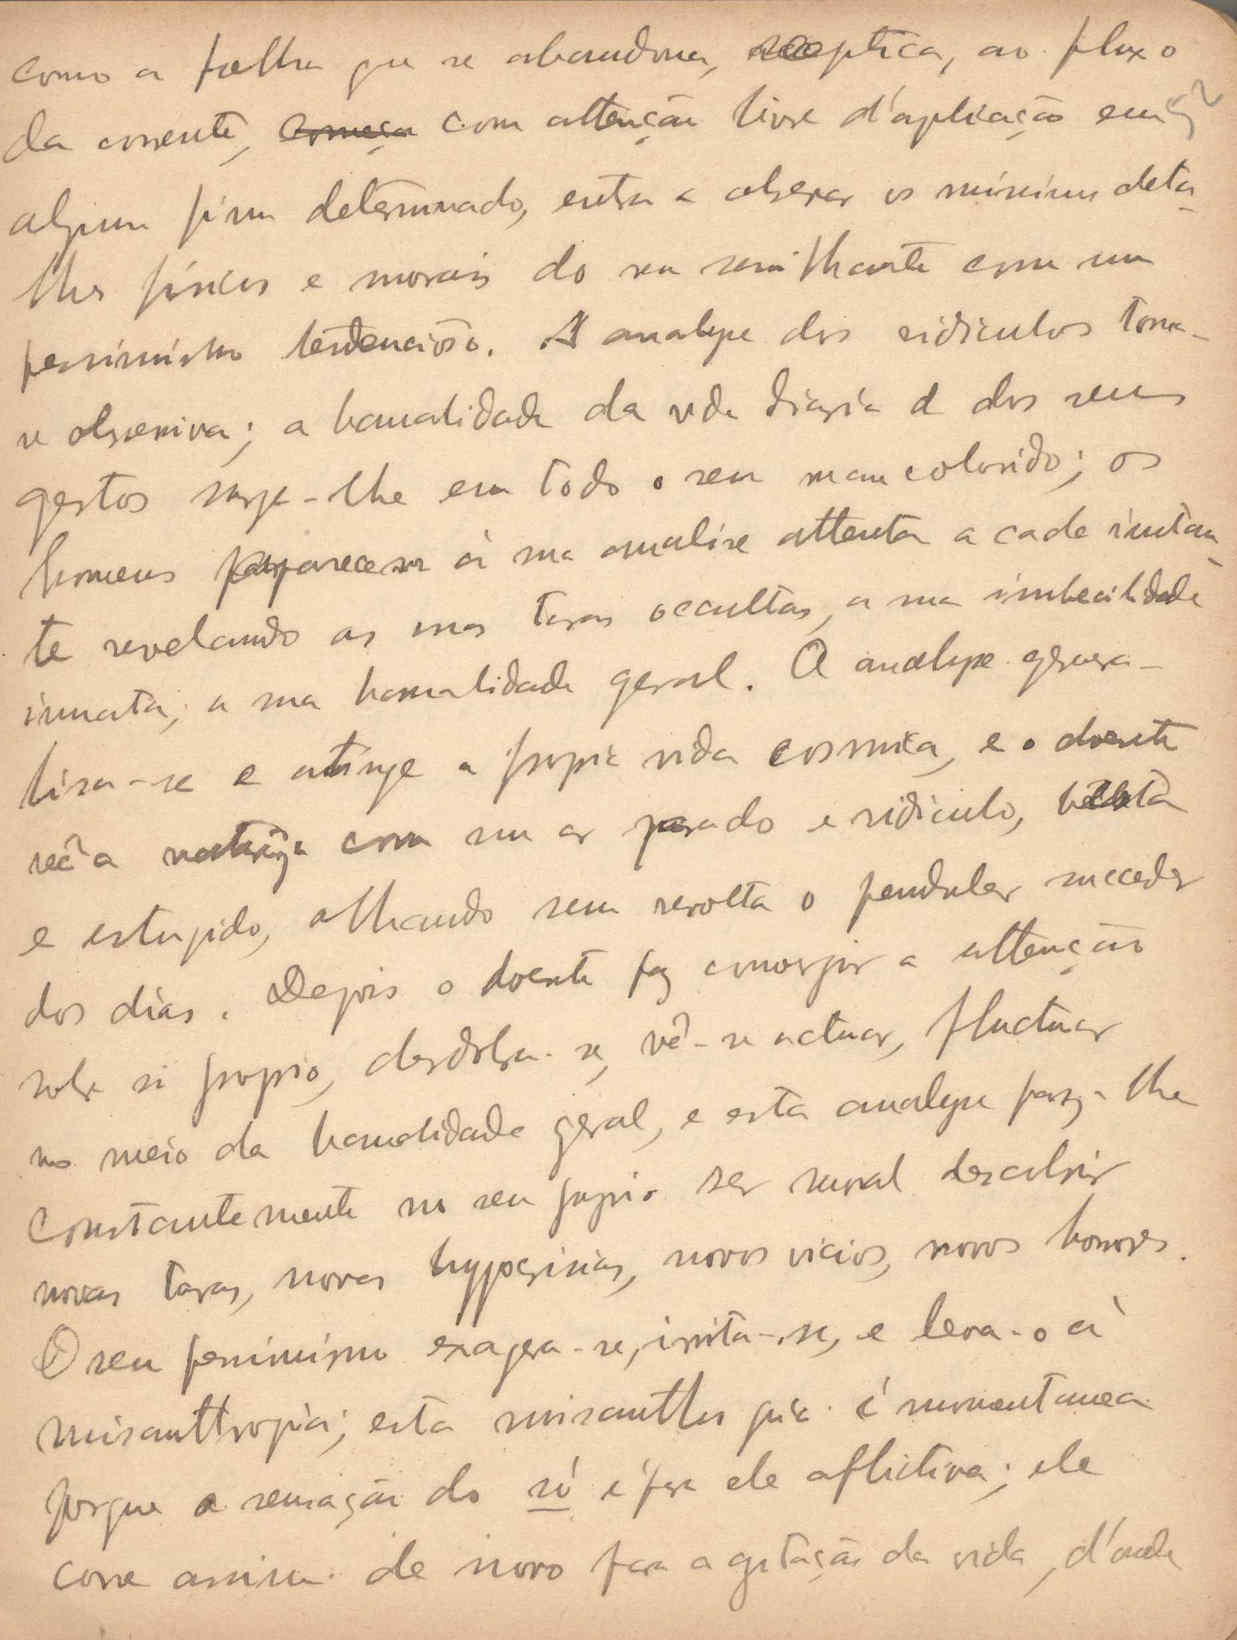 como a folha que se abandona, sceptica, ao fluxo
da corrente, começa com attenção livre d'apliação em
algum fim determinado, entra a observar os minimos deta-
lhes físicos e moraes do seu semilhante com um
pessimismo tendencioso. A analyse dos ridiculos torna-
se obsessiva; a banalidade da vida diaria e dos seus
gestos surge-lhe em todo o seu mau colorido; os
homens aparecem á sua analise attenta a cada instan-
te revelando as suas taras occultas, a sua imbecilidade
innata, a sua banalidade geral. A analyse genera-
lisa-se e atinge a propia vida cosmica, e o doente
vê a natureza com um ar parado e ridiculo,
e estupido, olhando sem revolta o pendular succeder
dos dias. Depois o doente faz convergir a attenção
sobre si proprio, desdobra-se, vê-se actuar, fluctuar
no meio da banalidade geral, e esta analyse faz-lhe
constantemente no seu proprio ser moral descobrir
novas taras, novas hypocrisias, novos vicios, novos horrores.
O seu pessimismo exagera-se, irrita-se, e leva-o á
misanthropia; esta misanthropia é momentanea
porque a sensação do só é para ele aflictiva; ele
corre assim de novo para a agitação da vida, d'onde